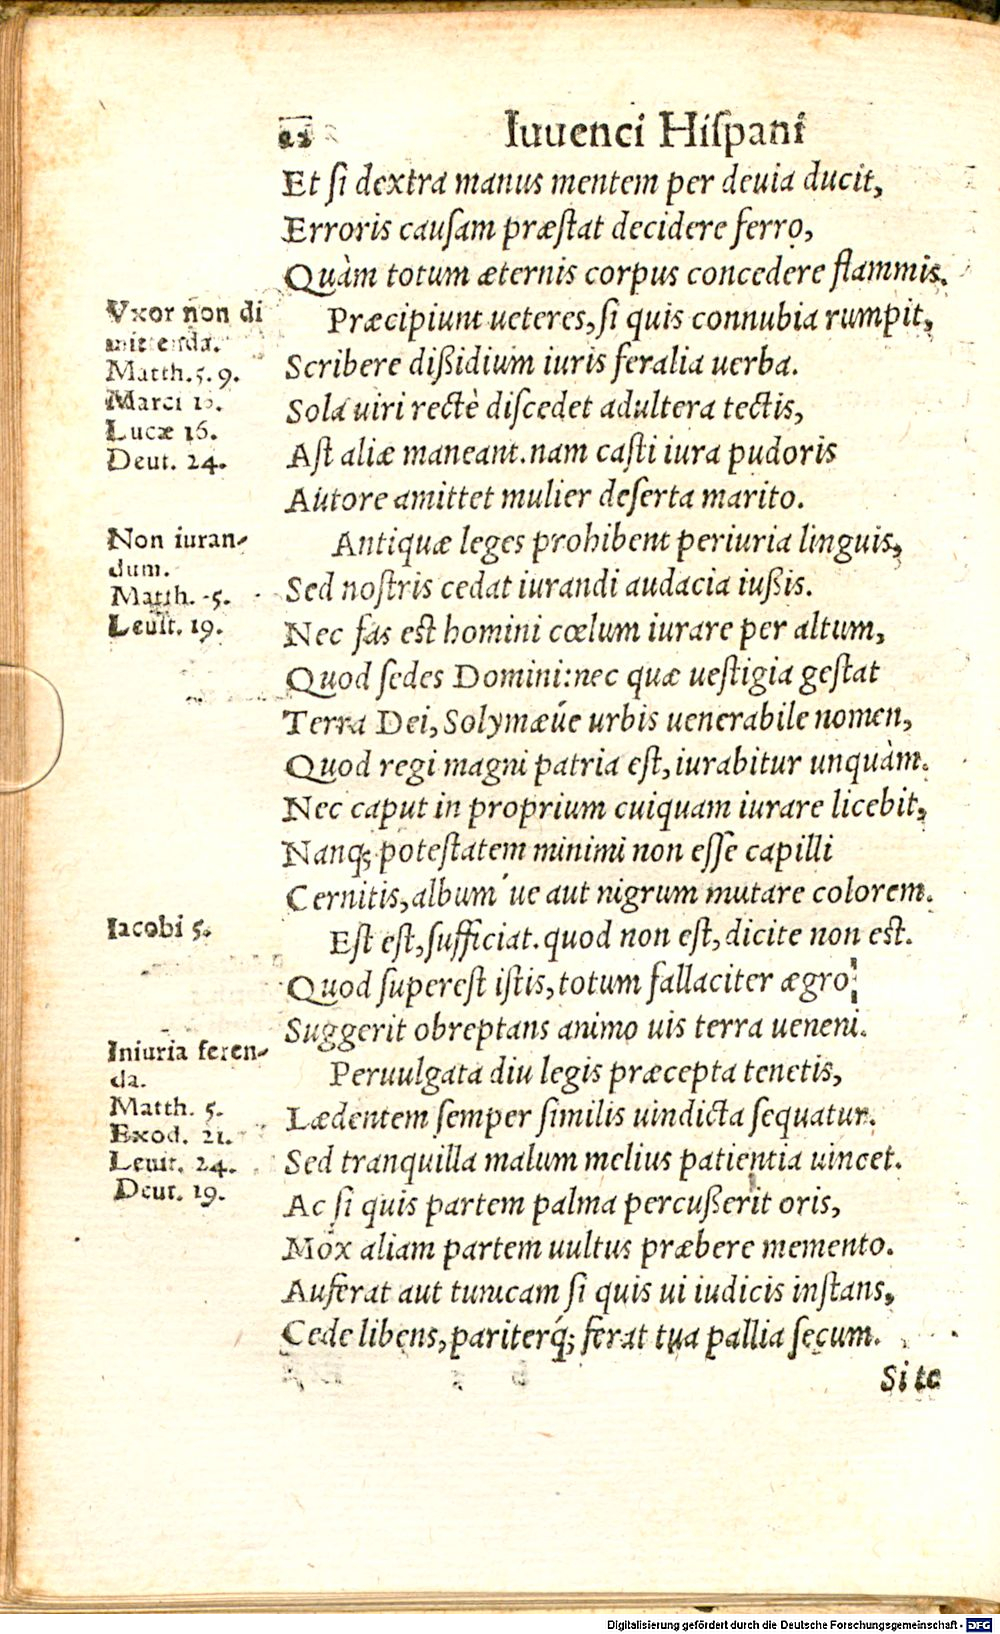 Iuuenci Hiſpani
Et ſi dextra manus mentem per deuia ducit,
Erroris cauſam præſtat decidere ferro,
Quàm totum æternis corpus concedere flammis.
Vxor non di
mittenda.
Matth. 5. 9.
Marci
Lucæ 16.
Deut. 24.
Præcipiunt ueteres, ſi quis connubia rumpit,
Scribere dißidium iuris feralia uerba.
Sola uiri rectè diſcedet adultera tectis,
Aſt aliæ maneant. nam caſti iura pudoris
Autore amittet mulier deſerta marito.
Non iuran-
dum.
Matth. 5.
Leuit. 19.
Antiquæ leges prohibent periuria linguis,
Sed noſtris cedat iurandi audacia iußis.
Nec fas eſt homini cœlum iurare per altum,
Quod ſedes Domini: nec quæ ueſtigia geſtat
Terra Dei, Solymæúe urbis uenerabile nomen,
Quod regi magni patria eſt, iurabitur unquàm.
Nec caput in proprium cuiquam iurare licebit,
Nanq; poteſtatem minimi non eſſe capilli
Cernitis, album'ue aut nigrum mutare colorem.
Iacobi 5.
Eſt eſt, ſufficiat. quod non eſt, dicite non eſt.
Quod ſupereſt iſtis, totum fallaciter ægro
Suggerit obreptans animo uis terra ueneni.
Iniuria feren-
da.
Matth. 5.
Exod. 21.
Leuit. 24.
Deut. 19.
Peruulgata diu legis præcepta tenetis,
Lædentem ſemper ſimilis uindicta ſequatur.
Sed tranquilla malum melius patientia uincet.
Ac ſi quis partem palma percußerit oris,
Mox aliam partem uultus præbere memento.
Auferat aut tunicam ſi quis ui iudicis inſtans,
Cede libens, pariterq́; ferat tua pallia ſecum.
Si te
Digitalisierung gefördert durch die Deutsche Forschungsgemeinschaft - DFG